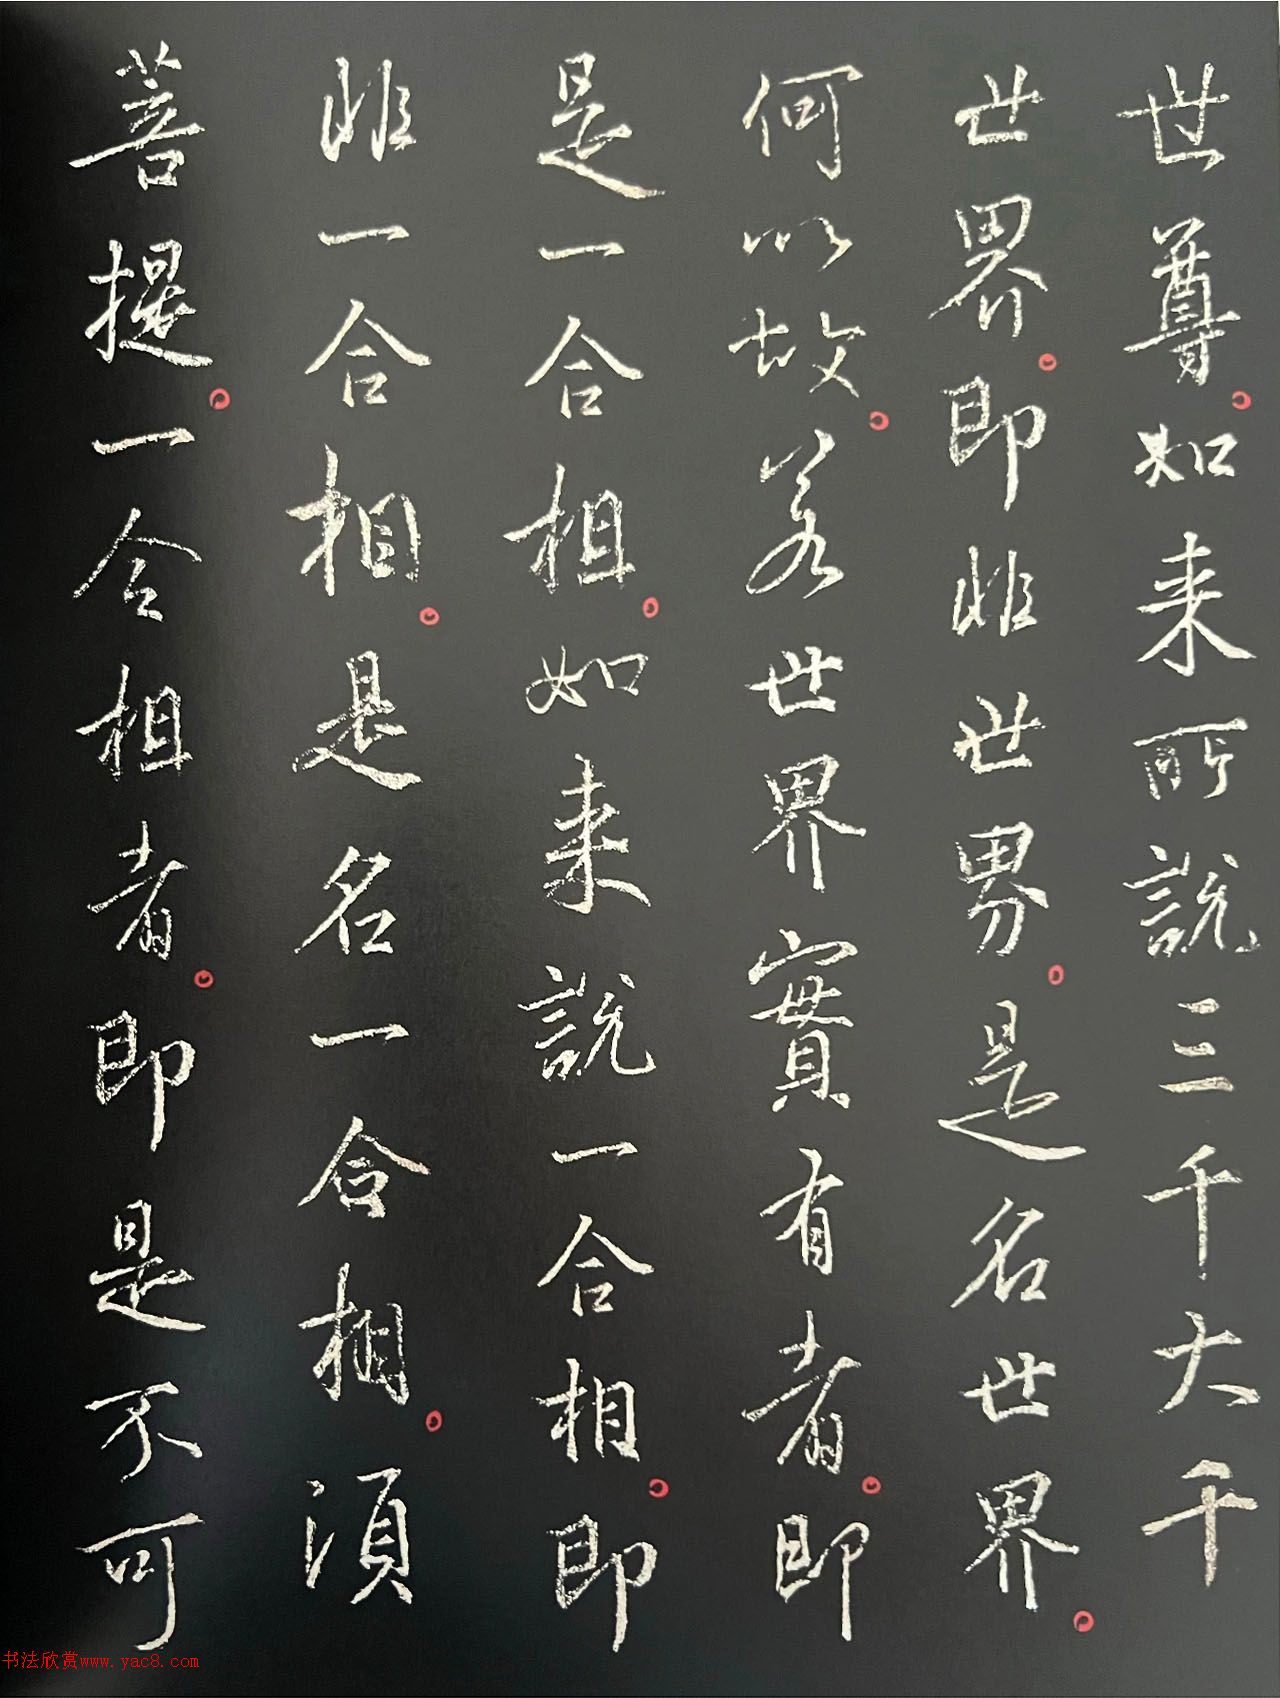 世尊。如来所說三千大千
世界。即非世界。是名世界。
何以故。若世界實有者。即
是一合相。如来說一合相。即
非一合相。是名一合相。須
菩提。一合相者。即是不可
书法欣赏www.yac8.com